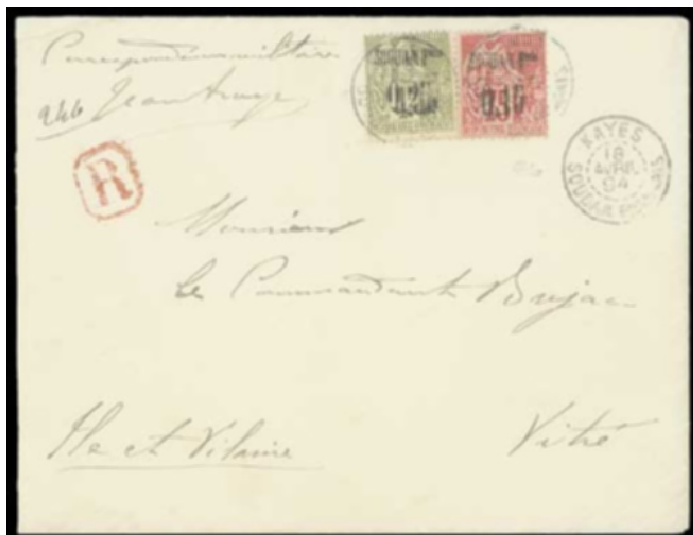 Correspondance militaire
SOUDAN Fais SOUDAN Fais
0.25 0.15
246
KAYES
18
AVRIL
94
SOUDAN FRANCAIS
R
Monsieur
le Commandant Brujac
Ile et Vilaine Vitré